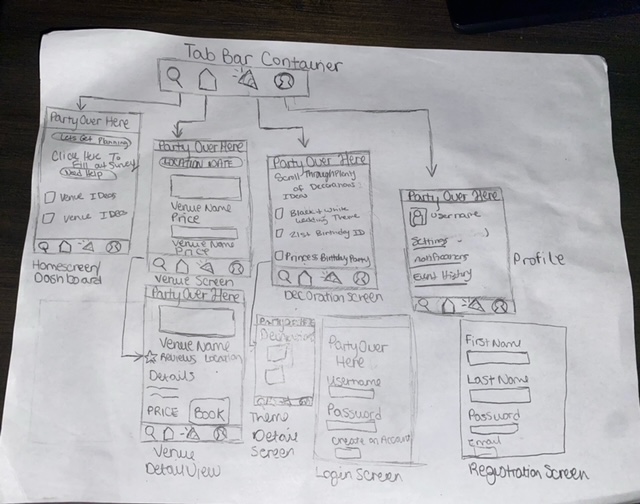 Tab Bar Container
Party Over Here
Lets Get Planning
Click Here To
Fill out Survey
Need Help
Venue IDeas
Venue IDeas
Homescreen/
Dashboard
Party Over Here
LOCATION DATE
Venue Name
Price
Venue Name
Price
Venue Screen
Party Over Here
Scroll Through Plenty
of Decorations
IDeas
Black + White
Wedding Theme
21st Birthday ID
Princes Birthday Party
Decoration Screen
Party Over Here
Username
Settings
notifications
Event History
Profile
Party Over Here
Venue Name
Reviews Location
Details
PRICE
BOOK
Venue
Detail View
Party Over Here
Decorations
Theme
Detail
Screen
Party Over
Here
Username
Password
Create an Account
Login Screen
First Name
Last Name
Password
Email
Registration Screen